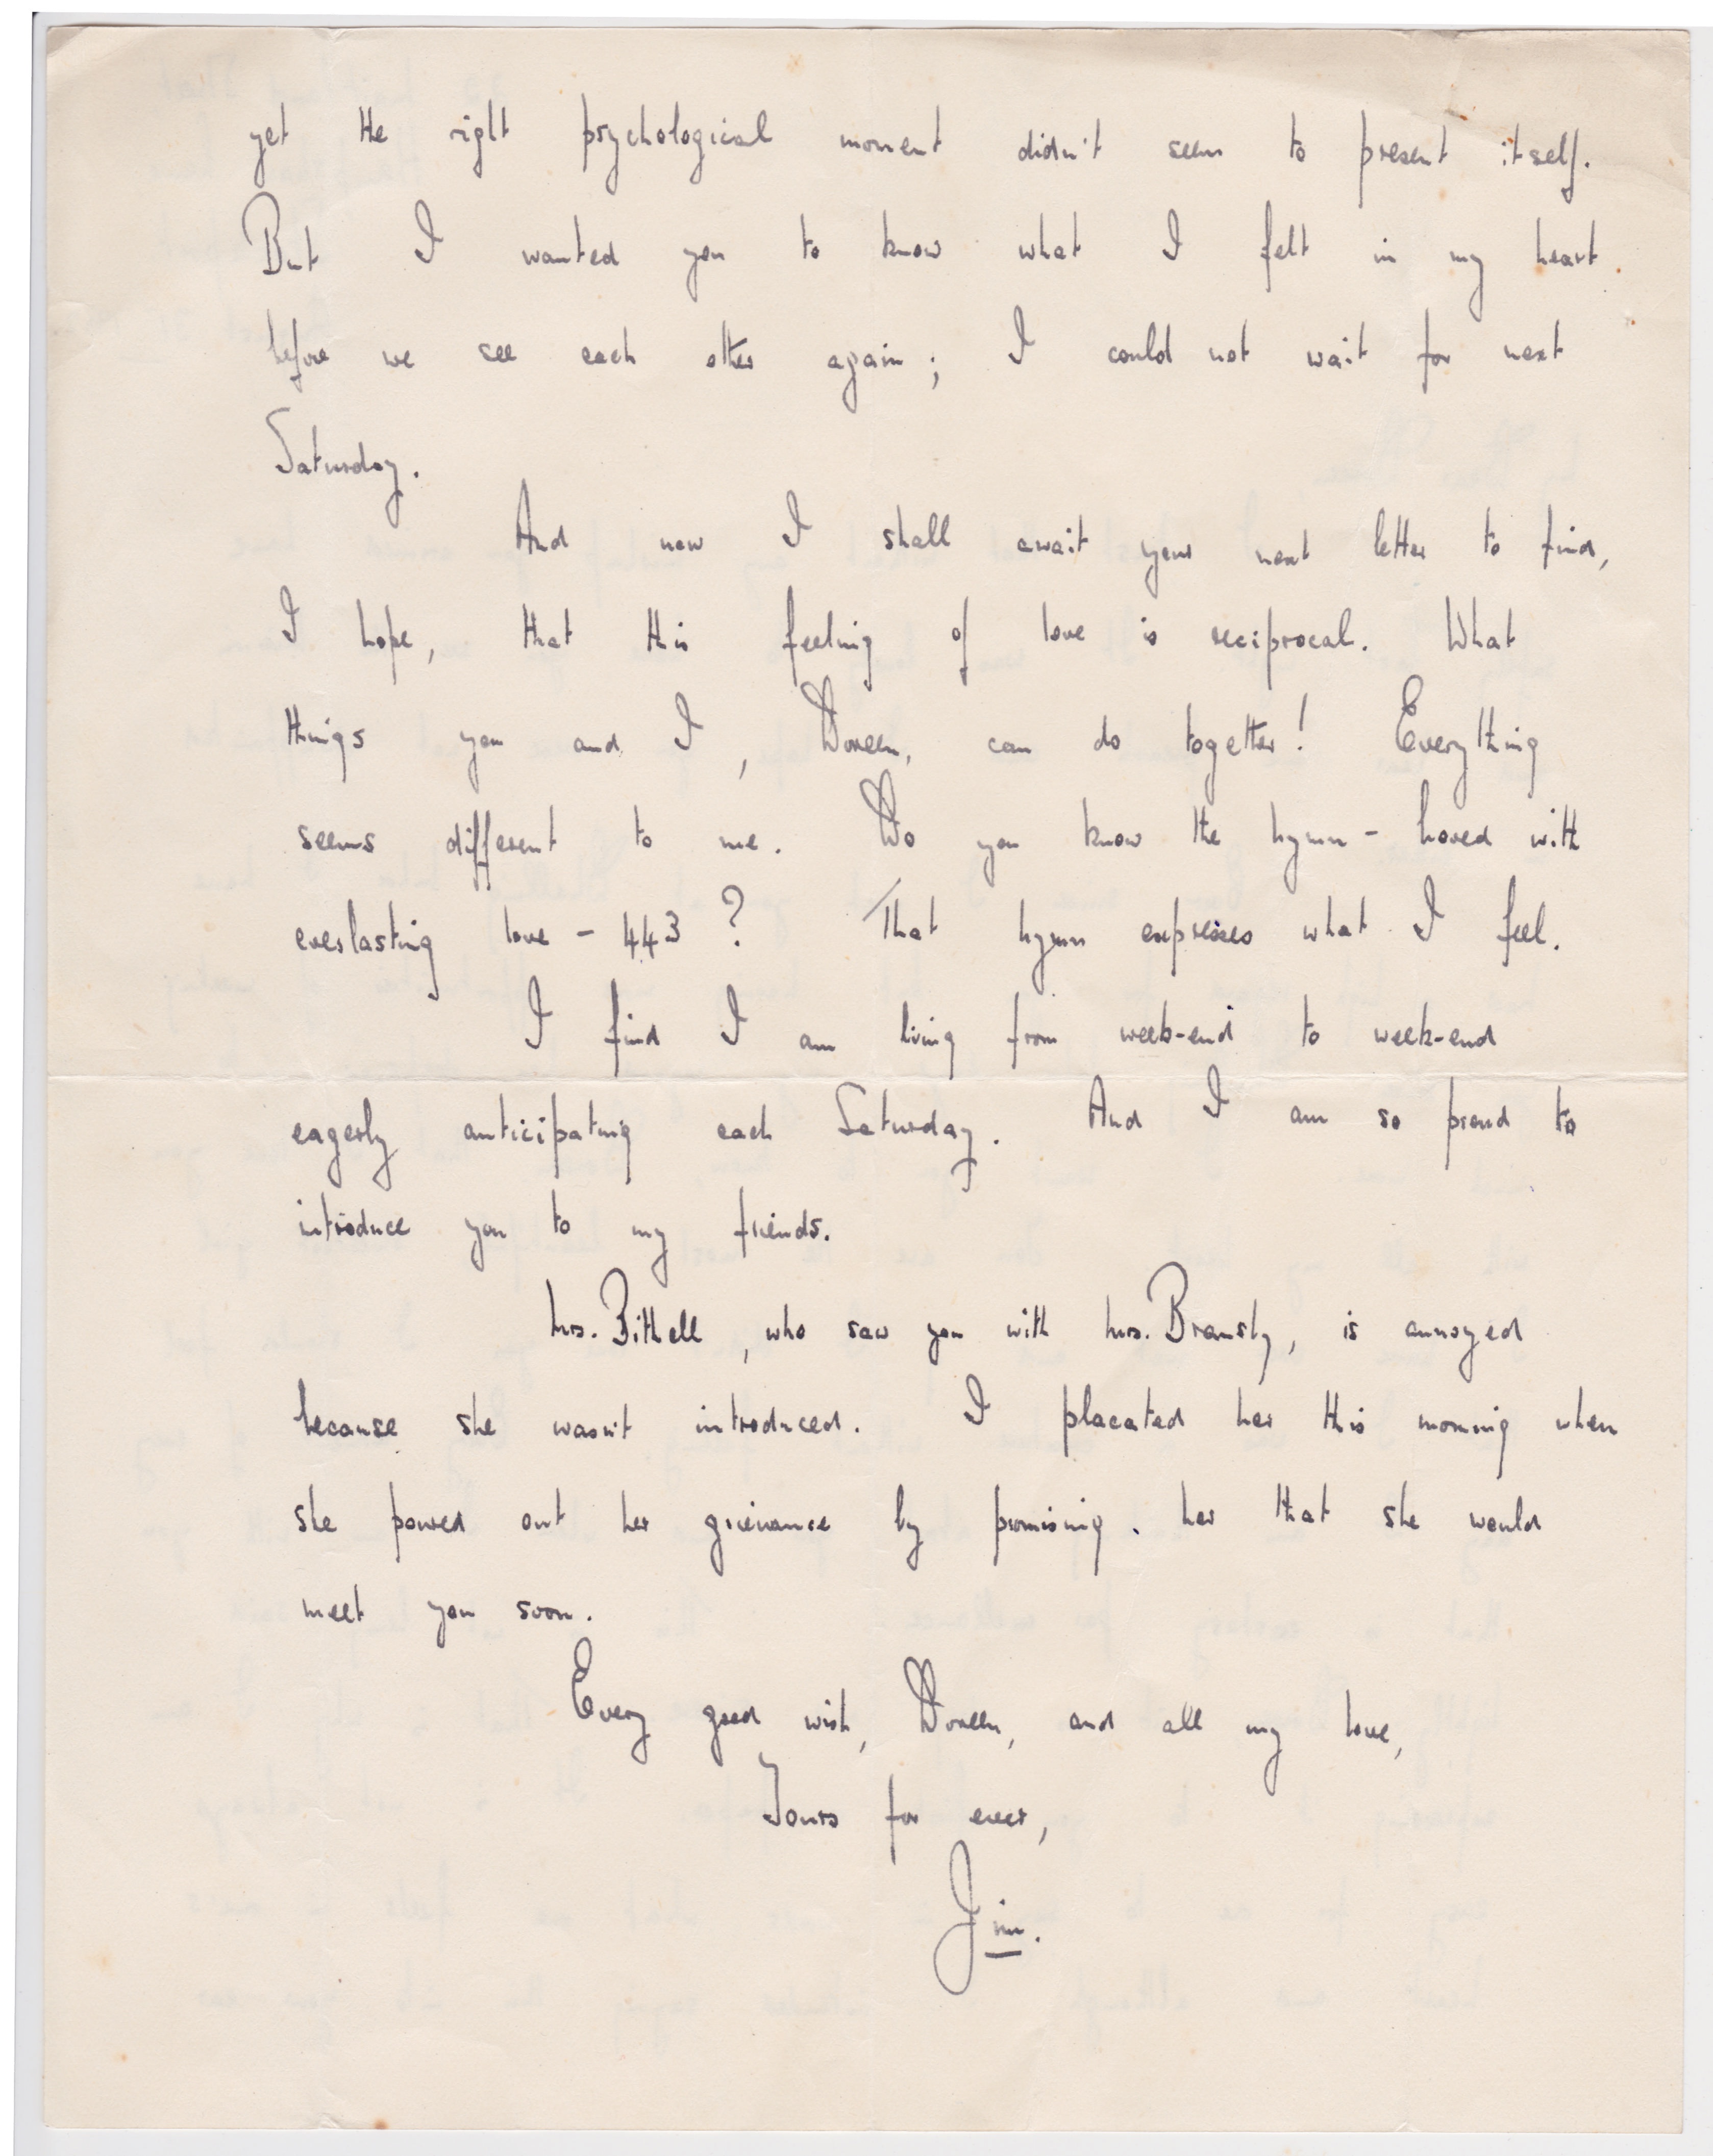 yet the right psychological moment didn't seem to present itself.
But I wanted you to know what I felt in my heart
before we see each other again; I could not wait for next
Saturday.
And now I shall await your next letter to find,
I hope, that this feeling of love is reciprocal. What
things you and I, Doreen, can do together! Everything
seems different to me. Do you know the hymn - Loved with
everlasting love - 443? That hymn expresses what I feel.
I find I am living from week-end to week-end
eagerly anticipating each Saturday. And I am so proud to
introduce you to my friends.
Mrs. Bithell, who saw you with Mrs. Bramsly, is annoyed
because she wasn't introduced. I placated her this morning when
she poured out her grievance by promising her that she would
meet you soon.
Every good wish, Doreen, and all my love,
Yours for ever,
Jim.